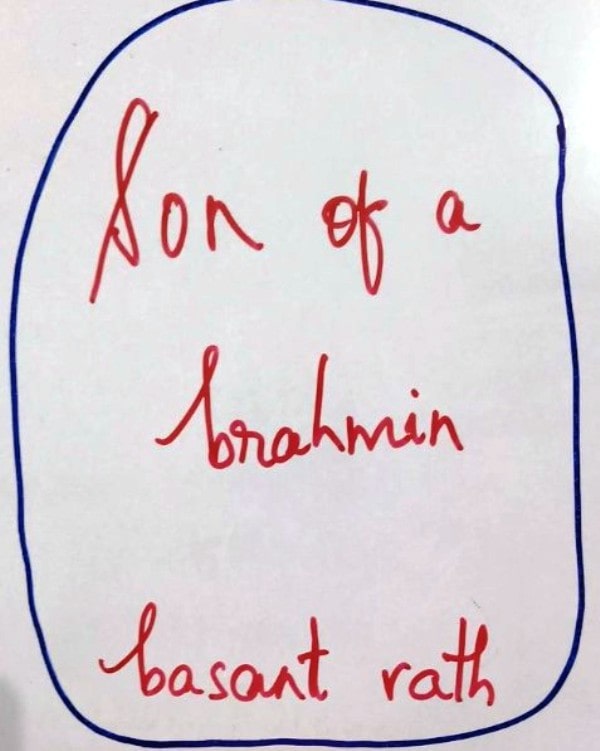 Son of a
brahmin
basant rath